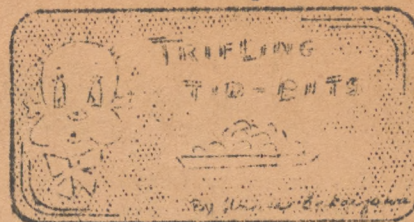 TRIFLING
TID-BITS
By